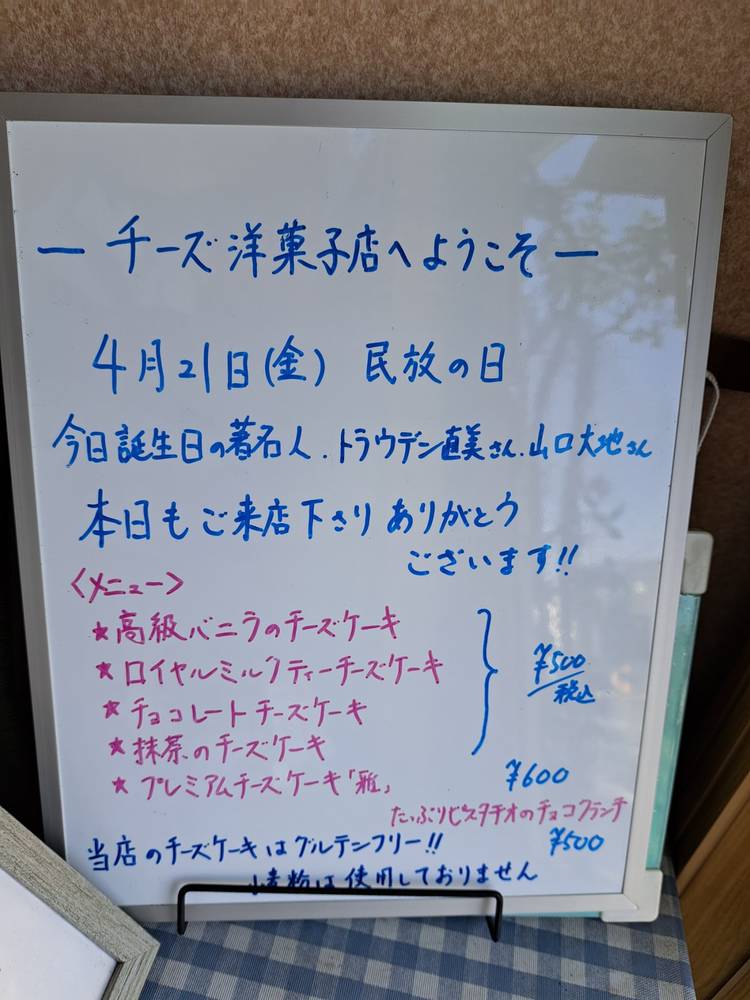 ー チーズ洋菓子店へようこそ ー
4月21日(金) 民放の日
今日誕生日の著名人、トラウデン直美さん、山口大地さん
本日もご来店下さりありがとう
ございます!!
<メニュー>
★高級バニラのチーズケーキ
★ロイヤルミルクティーチーズケーキ
★チョコレートチーズケーキ
¥500
税込
★抹茶のチーズケーキ
★プレミアムチーズケーキ「雅」 ¥600
たっぷりピスタチオのチョコクランチ
¥500
当店のチーズケーキはグルテンフリー!!
小麦粉は使用しておりません